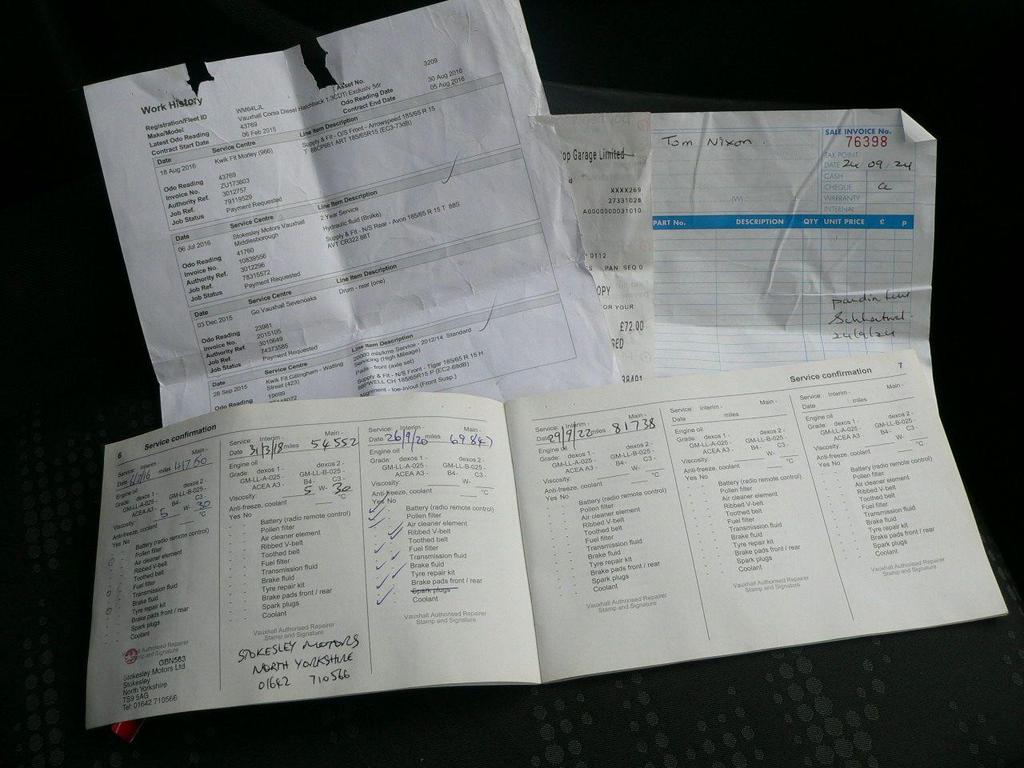 Work History
3209
Registration/Fleet ID WM64LJL Asset No.
Make/Model Vauxhall Corsa Diesel Hatchback 1.3CDTi Exclusiv 5dr
Latest Odo Reading 43769 Odo Reading Date 30 Aug 2016
Contract Start Date 06 Feb 2015 Contract End Date 05 Aug 2016
Date Service Centre Line Item Description
18 Aug 2016 Kwik Fit Morley (966) Supply & Fit - O/S Front - Arrowspeed 185/65 R 15
Odo Reading 43769
Invoice No. ZU173603
Authority Ref. 3012757
Job Ref. 79119529
Job Status Payment Requested
Date Service Centre Line Item Description
06 Jul 2016 Stokesley Motors Vauxhall Middlesborough 2 Year Service
Hydraulic fluid (Brake)
Supply & Fit - N/S Rear - Avon 185/65 R 15 T 88S
AVT CR322 88T
Odo Reading 41760
Invoice No. 10839556
Authority Ref. 3012296
Job Ref. 78315572
Job Status Payment Requested
Date Service Centre Line Item Description
03 Dec 2015 Go Vauxhall Sevenoaks Drum - rear (one)
Odo Reading 23981
Invoice No. 2015105
Authority Ref. 3010649
Job Ref. 74373585
Job Status Payment Requested
Date Service Centre Line Item Description
28 Sep 2015 Kwik Fit Gillingham - Watling Street (423) 20000 mls/kms Service - 2012/14 Standard
Servicing (High Mileage)
Pads - front (axle set)
Supply & Fit - N/S Front - Tigar 185/65 R 15 H
Alignment - toe-in/out (Front Susp.)
Odo Reading
op Garage Limited
XXXX269
27331028
A0000000031010
0112
PAN SEQ 0
OPY
OR YOUR
£72.00
ED
Tom Nixon
SALE INVOICE No.
76398
TAX POINT
DATE 24 09/24
CASH
CHEQUE
WARRANTY
INTERNAL
(W)
PART No. DESCRIPTION QTY UNIT PRICE £ p
24/9/24
6 Service confirmation
Service: Interim - Main -
Date 6/7/16 miles 41760
Engine oil
Grade: dexos 1 - dexos 2 -
GM-LL-A-025 - GM-LL-B-025 -
ACEA A3 - B4- C3 -
Viscosity: 5 W- 30
Anti-freeze, coolant °C
Yes No
Battery (radio remote control)
Pollen filter
Air cleaner element
Ribbed V-belt
Toothed belt
Fuel filter
Transmission fluid
Brake fluid
Tyre repair kit
Brake pads front / rear
Spark plugs
Coolant
Authorised Repairer
GBN563
Stokesley Motors Ltd
Stokesley
North Yorkshire
TS9 5AG
Tel: 01642 710566
Service: Interim - Main -
Date 31/3/18 miles 54552
Engine oil
Grade: dexos 1 - dexos 2 -
GM-LL-A-025 - GM-LL-B-025 -
ACEA A3 - B4- C3 -
Viscosity: 5 W- 30
Anti-freeze, coolant °C
Yes No
Battery (radio remote control)
Pollen filter
Air cleaner element
Ribbed V-belt
Toothed belt
Fuel filter
Transmission fluid
Brake fluid
Tyre repair kit
Brake pads front / rear
Spark plugs
Coolant
Vauxhall Authorised Repairer
Stamp and Signature
STOKESLEY MOTORS
NORTH YORKSHIRE
01642 710566
Service: Interim - Main -
Date 26/9/20 miles 69847
Engine oil
Grade: dexos 1 - dexos 2 -
GM-LL-A-025 - GM-LL-B-025 -
ACEA A3 - B4- C3 -
Viscosity: W-
Anti-freeze, coolant °C
Yes No
Battery (radio remote control)
Pollen filter
Air cleaner element
Ribbed V-belt
Toothed belt
Fuel filter
Transmission fluid
Brake fluid
Tyre repair kit
Brake pads front / rear
Spark plugs
Coolant
Vauxhall Authorised Repairer
Stamp and Signature
Service confirmation 7
Service: Interim - Main -
Date 29/9/22 miles 81738
Engine oil
Grade: dexos 1 - dexos 2 -
GM-LL-A-025 - GM-LL-B-025 -
ACEA A3 - B4- C3 -
Viscosity: W-
Anti-freeze, coolant °C
Yes No
Battery (radio remote control)
Pollen filter
Air cleaner element
Ribbed V-belt
Toothed belt
Fuel filter
Transmission fluid
Brake fluid
Tyre repair kit
Brake pads front / rear
Spark plugs
Coolant
Vauxhall Authorised Repairer
Stamp and Signature
Service: Interim - Main -
Date miles
Engine oil
Grade: dexos 1 - dexos 2 -
GM-LL-A-025 - GM-LL-B-025 -
ACEA A3 - B4- C3 -
Viscosity: W-
Anti-freeze, coolant °C
Yes No
Battery (radio remote control)
Pollen filter
Air cleaner element
Ribbed V-belt
Toothed belt
Fuel filter
Transmission fluid
Brake fluid
Tyre repair kit
Brake pads front / rear
Spark plugs
Coolant
Vauxhall Authorised Repairer
Stamp and Signature
Service: Interim - Main -
Date miles
Engine oil
Grade: dexos 1 - dexos 2 -
GM-LL-A-025 - GM-LL-B-025 -
ACEA A3 - B4- C3 -
Viscosity: W-
Anti-freeze, coolant °C
Yes No
Battery (radio remote control)
Pollen filter
Air cleaner element
Ribbed V-belt
Toothed belt
Fuel filter
Transmission fluid
Brake fluid
Tyre repair kit
Brake pads front / rear
Spark plugs
Coolant
Vauxhall Authorised Repairer
Stamp and Signature